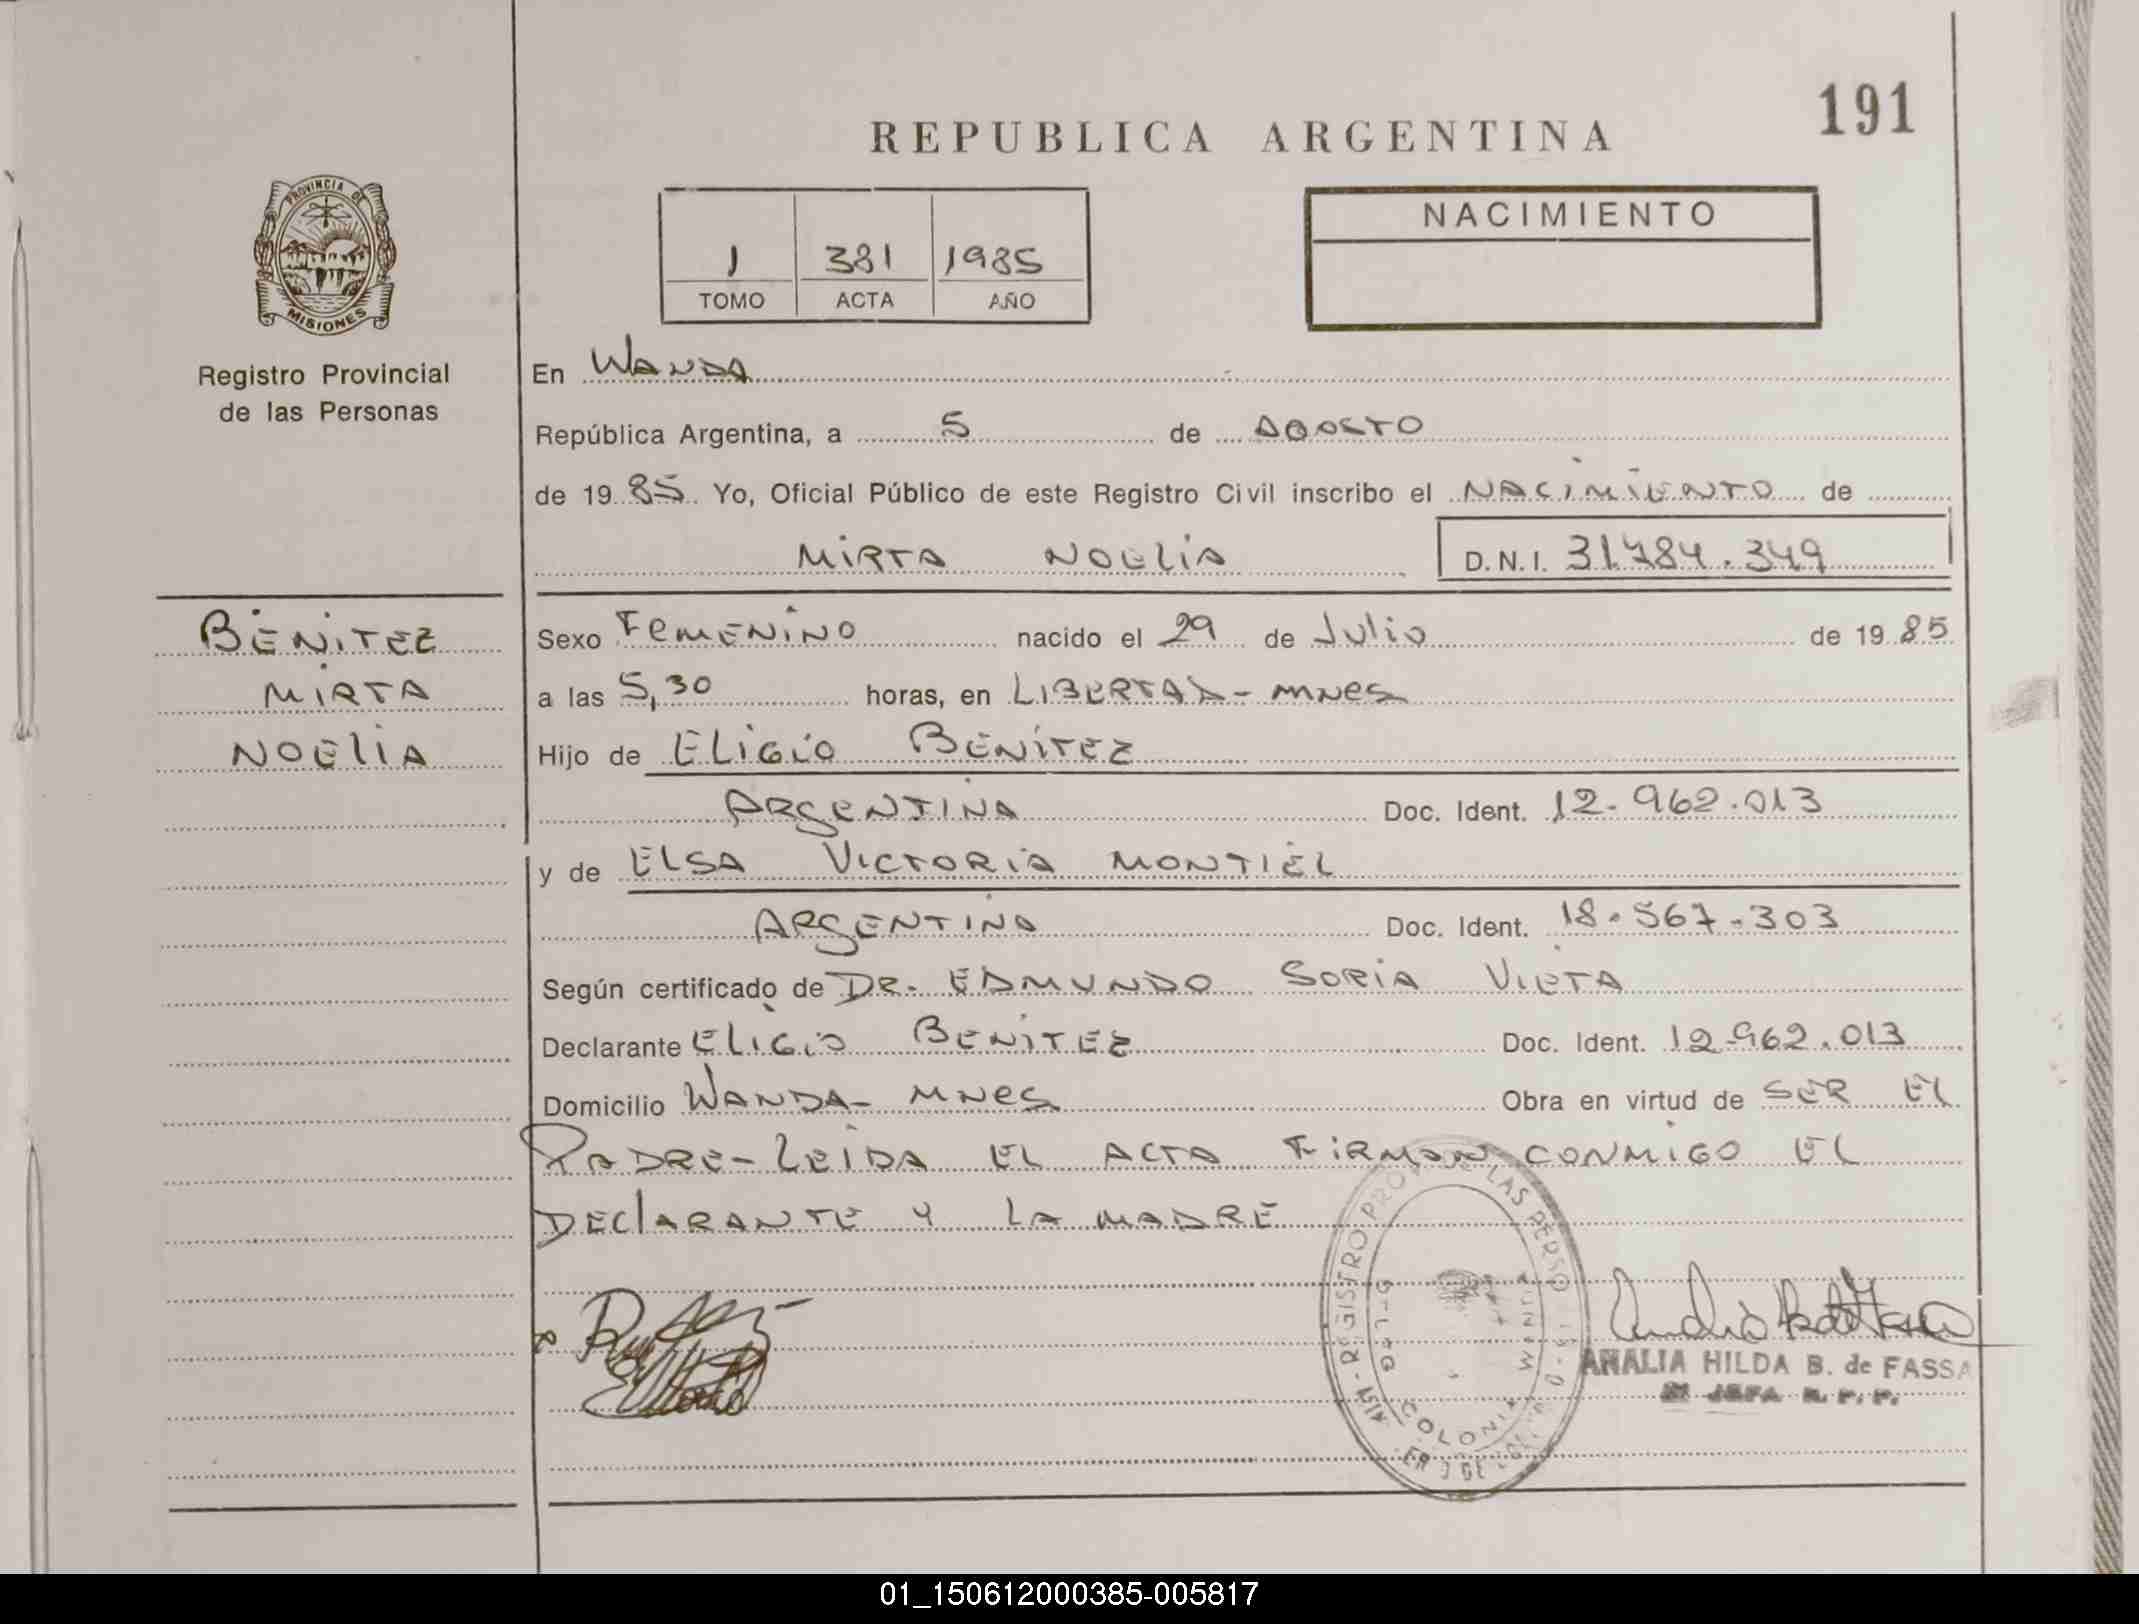 191
REPUBLICA ARGENTINA
PROVINCIA DE
MISIONES
Registro Provincial
de las Personas
1 381 1985
TOMO ACTA AÑO
NACIMIENTO
En WANDA
República Argentina, a 5 de AGOSTO
de 1985 Yo, Oficial Público de este Registro Civil inscribo el NACIMIENTO de
MIRTA NOELIA D.N.I. 31.784.349
BENITEZ
MIRTA
NOELIA
Sexo FEMENINO nacido el 29 de Julio de 1985
a las 5,30 horas, en LIBERTAD - MNES
Hijo de ELIGIO BENITEZ
ARGENTINA Doc. Ident. 12.962.013
y de ELSA VICTORIA MONTIEL
ARGENTINA Doc. Ident. 18.567.303
Según certificado de DR. EDMUNDO SORIA VIETA
Declarante ELIGIO BENITEZ Doc. Ident. 12.962.013
Domicilio WANDA - MNES Obra en virtud de SER EL
PADRE - LEIDA EL ACTA FIRMAN CONMIGO EL
DECLARANTE Y LA MADRE
COLONIA WANDA
ANALIA HILDA B. de FASSA
JEFA R. P. P.
01_150612000385-005817